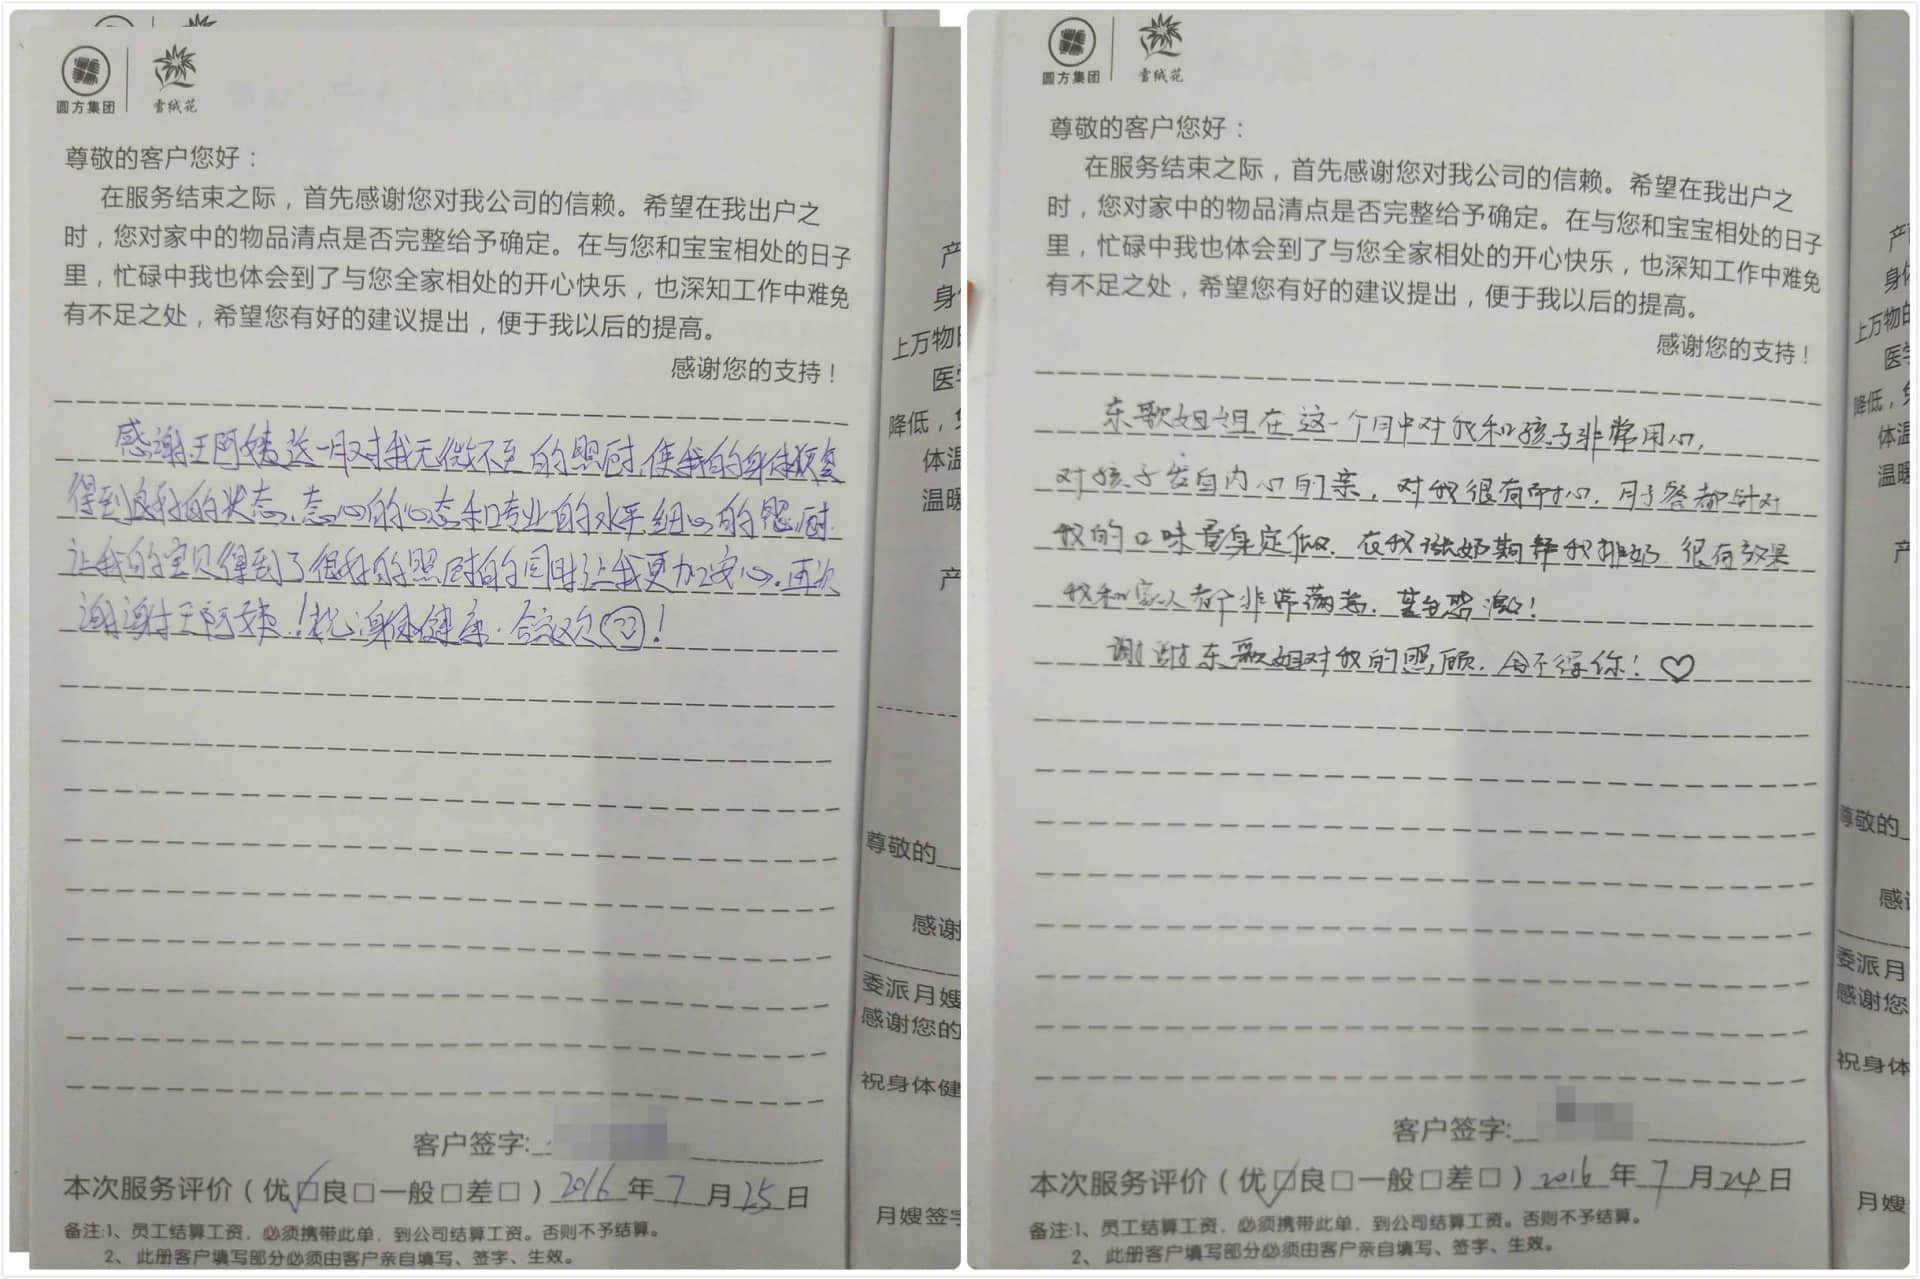 圆方集团
雪绒花
尊敬的客户您好：
在服务结束之际，首先感谢您对我公司的信赖。希望在我出户之
时，您对家中的物品清点是否完整给予确定。在与您和宝宝相处的日子
里，忙碌中我也体会到了与您全家相处的开心快乐，也深知工作中难免
有不足之处，希望您有好的建议提出，便于我以后的提高。
感谢您的支持！
感谢王阿姨这一月对我无微不至的照顾，使我的身体恢复
得到良好的状态、的心态和专业的水平细心的照顾.
让我的宝贝得到了很好的照顾的同时让我更加安心。再次
谢谢王阿姨！祝身体健康.合家欢！
客户签字:
本次服务评价（优□良□一般□差□）2016年7月25日
备注:1、员工结算工资，必须携带此单，到公司结算工资。否则不予结算。
2、此册客户填写部分必须由客户亲自填写、签字、生效。
产
身
上万物
医
降低，
体温
温暖
产
尊敬的
感谢
委派月嫂
感谢您的
祝身体健
月嫂签字
圆方集团
雪绒花
尊敬的客户您好：
在服务结束之际，首先感谢您对我公司的信赖。希望在我出户之
时，您对家中的物品清点是否完整给予确定。在与您和宝宝相处的日子
里，忙碌中我也体会到了与您全家相处的开心快乐，也深知工作中难免
有不足之处，希望您有好的建议提出，便于我以后的提高。
感谢您的支持！
东歌姐姐在这一个月中对我和孩子非常用心，
对孩子发自内心的亲，对我很有耐心.月子餐都针对
我的口味量身定做.在我涨奶期帮我排奶.很有效果
我和家人都非常满意.甚至感激！
谢谢东歌姐对我的照顾.舍不得你！♡
客户签字:
本次服务评价（优□良□一般□差□）2016年7月24日
备注:1、员工结算工资，必须携带此单，到公司结算工资。否则不予结算。
2、此册客户填写部分必须由客户亲自填写、签字、生效。
产
身体
上万物的
医学
降低，
体温
温暖
产
尊敬的
感谢
委派月
感谢您
祝身体
月嫂